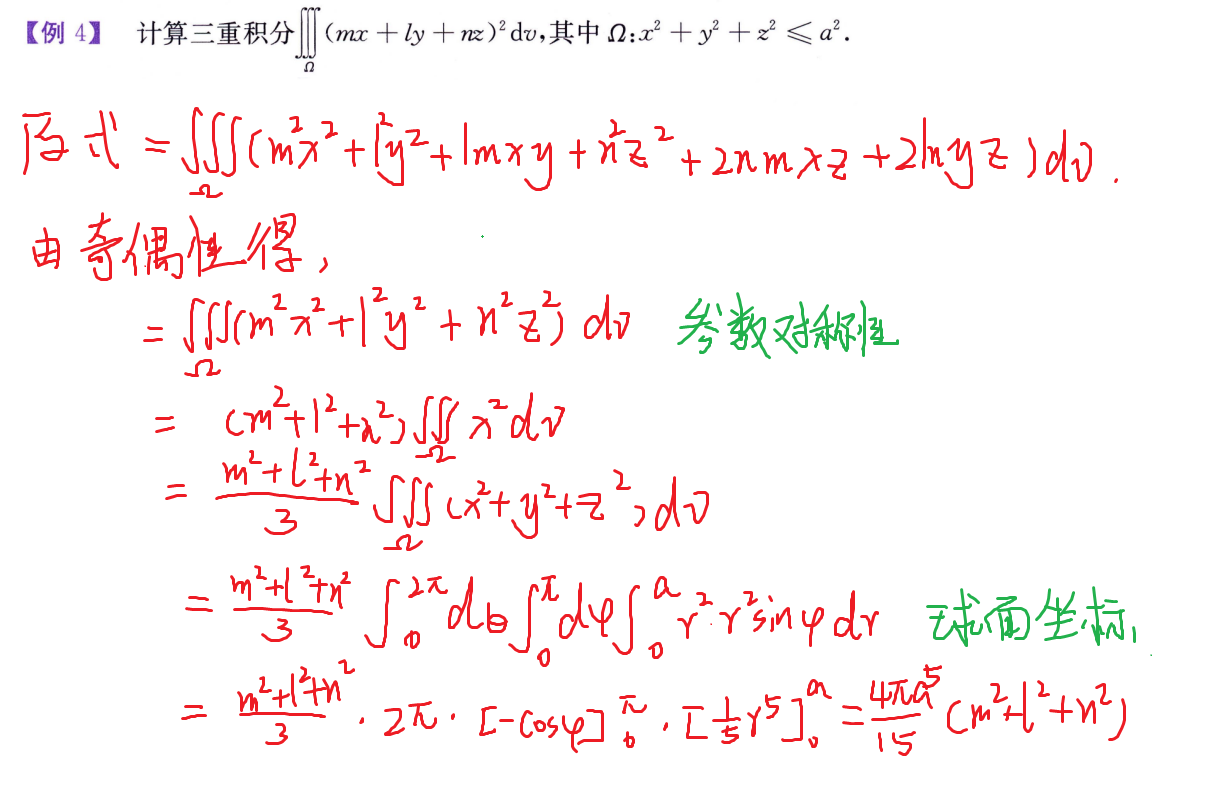 【例 4】 计算三重积分∭_Ω (mx + ly + nz)² dv,其中 Ω:x² + y² + z² ⩽ a².
原式 = ∭_Ω (m²x² + l²y² + lmxy + n²z² + 2nmxz + 2lnyz) dv.
由奇偶性得,
= ∭_Ω (m²x² + l²y² + n²z²) dv 参数对称性
= (m² + l² + n²) ∭_Ω x² dv
= (m² + l² + n²)/3 ∭_Ω (x² + y² + z²) dv
= (m² + l² + n²)/3 ∫_0^{2π} dθ ∫_0^π dφ ∫_0^a r²·r² sinφ dr 球面坐标,
= (m² + l² + n²)/3 · 2π · [-cosφ]_0^π · [1/5 r⁵]_0^a = 4πa⁵/15 (m² + l² + n²)